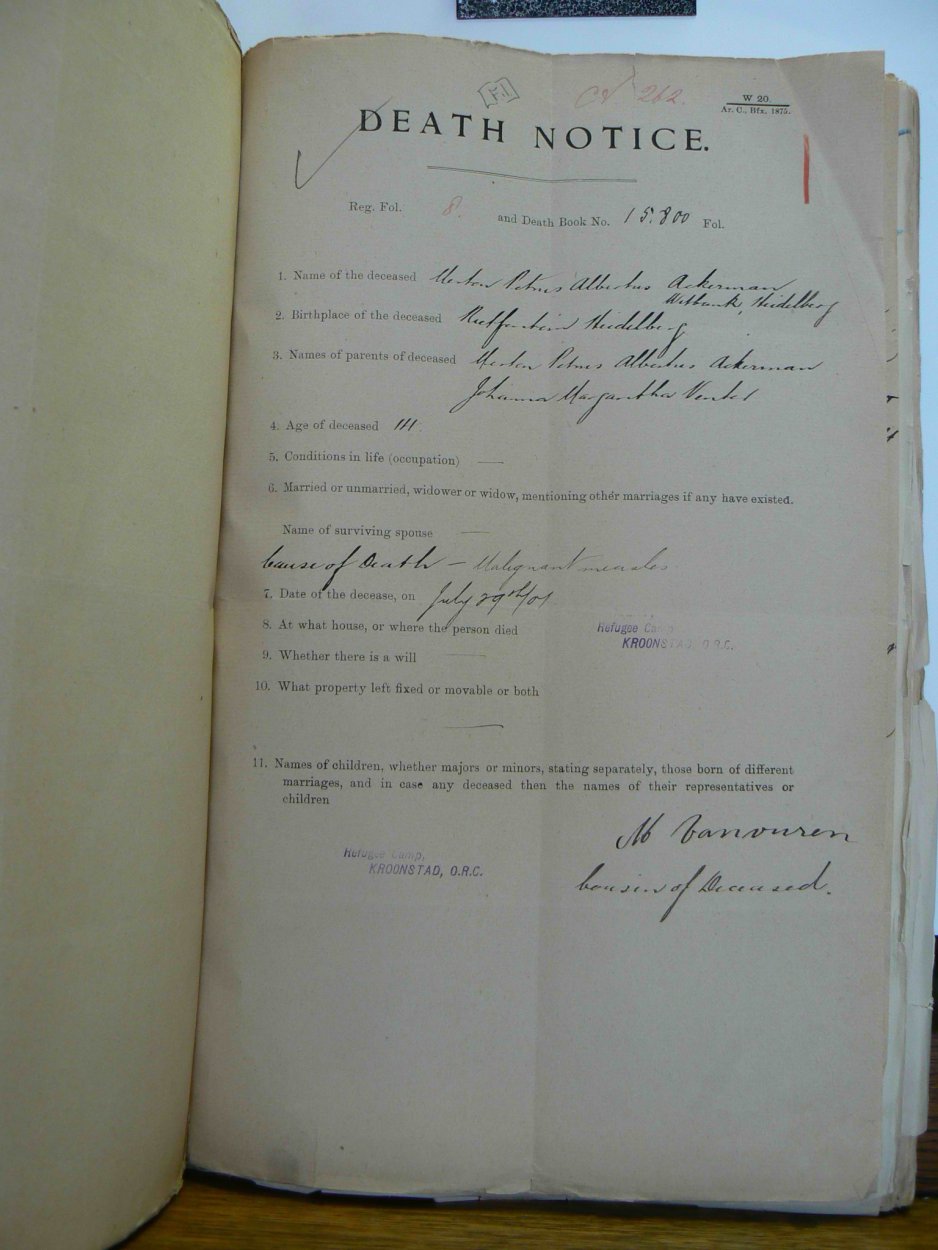 F.1
CA 262.
W 20
Ar. C., Bfx. 1875.
DEATH NOTICE.
Reg. Fol. 8. and Death Book No. 15.800 Fol.
1. Name of the deceased Petrus Albertus Ackerman
Witbank, Heidelberg
2. Birthplace of the deceased Rietfontein Heidelberg
3. Names of parents of deceased Petrus Albertus Ackerman
Johanna Margaretha Venter
4. Age of deceased
5. Conditions in life (occupation) —
6. Married or unmarried, widower or widow, mentioning other marriages if any have existed.
Name of surviving spouse —
Cause of Death — Malignant measles
7. Date of the decease, on July 29th/01
8. At what house, or where the person died Refugee Camp
KROONSTAD, O.R.C.
9. Whether there is a will —
10. What property left fixed or movable or both
—
11. Names of children, whether majors or minors, stating separately, those born of different
marriages, and in case any deceased then the names of their representatives or
children
M Vanvuren
Refugee Camp,
KROONSTAD, O.R.C.
Cousin of Deceased.